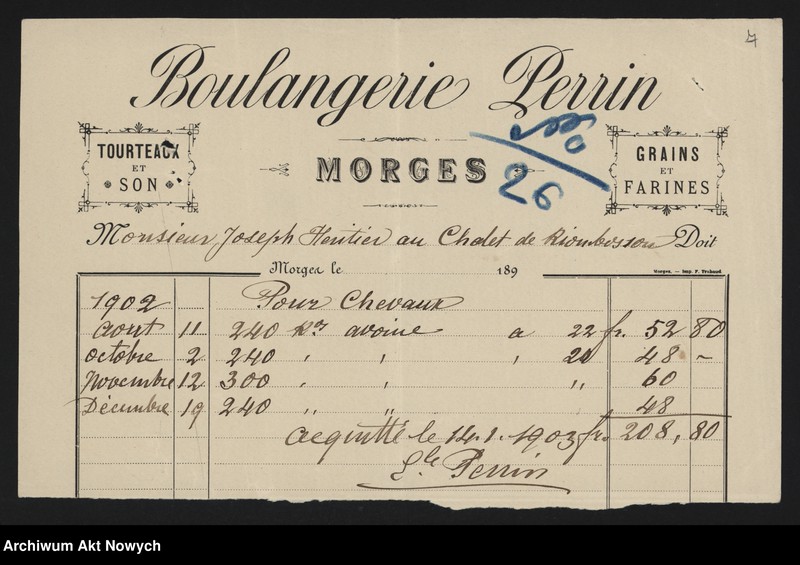 Boulangerie Perrin
TOURTEAUX
ET
SON
MORGES
GRAINS
ET
FARINES
Monsieur Joseph Heritier au Chalet de Riombosson Doit
Morges le 189
Morges. — Imp. F. Trabaud.
1902 Pour Chevaux
Aout 11 240 Kos avoine a 22 fr. 52 80
Octobre 2 240 " " " 20 48 -
Novembre 12 300 " " " 60
Décembre 19 240 " " 48
acquitté le 14.1.1903 fr. 208,80
Perrin
Archiwum Akt Nowych